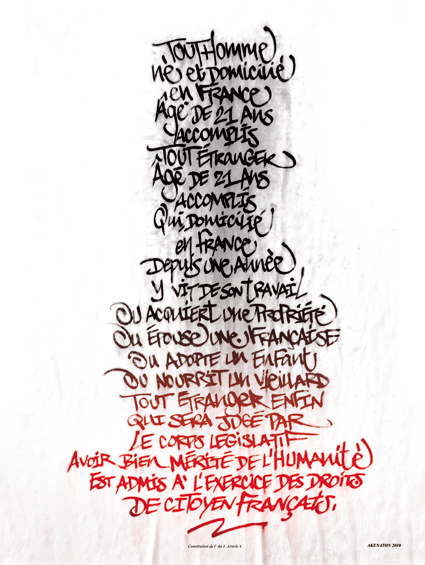 TOUT HOMME
né et DOMICILIÉ
en FRANCE
Âgé DE 21 ANS
ACCOMPLIS
TOUT ÉTRANGER
Âgé DE 21 ANS
ACCOMPLIS
QUI DOMICILIÉ
en FRANCE
DEPUIS UNE ANNÉE
Y VIT DE SON TRAVAIL
OU ACQUIERT UNE PROPRIÉTÉ
OU ÉPOUSE UNE FRANÇAISE
OU ADOPTE UN ENFANT
OU NOURRIT UN VIEILLARD
TOUT ETRANGER ENFIN
QUI SERA JUGÉ PAR
LE CORPS LEGISLATIF
AVOIR BIEN MÉRITÉ DE L'HUMANITÉ
EST ADMIS A L'EXERCICE DES DROITS
DE CITOYEN FRANÇAIS.
AKENATON 2010